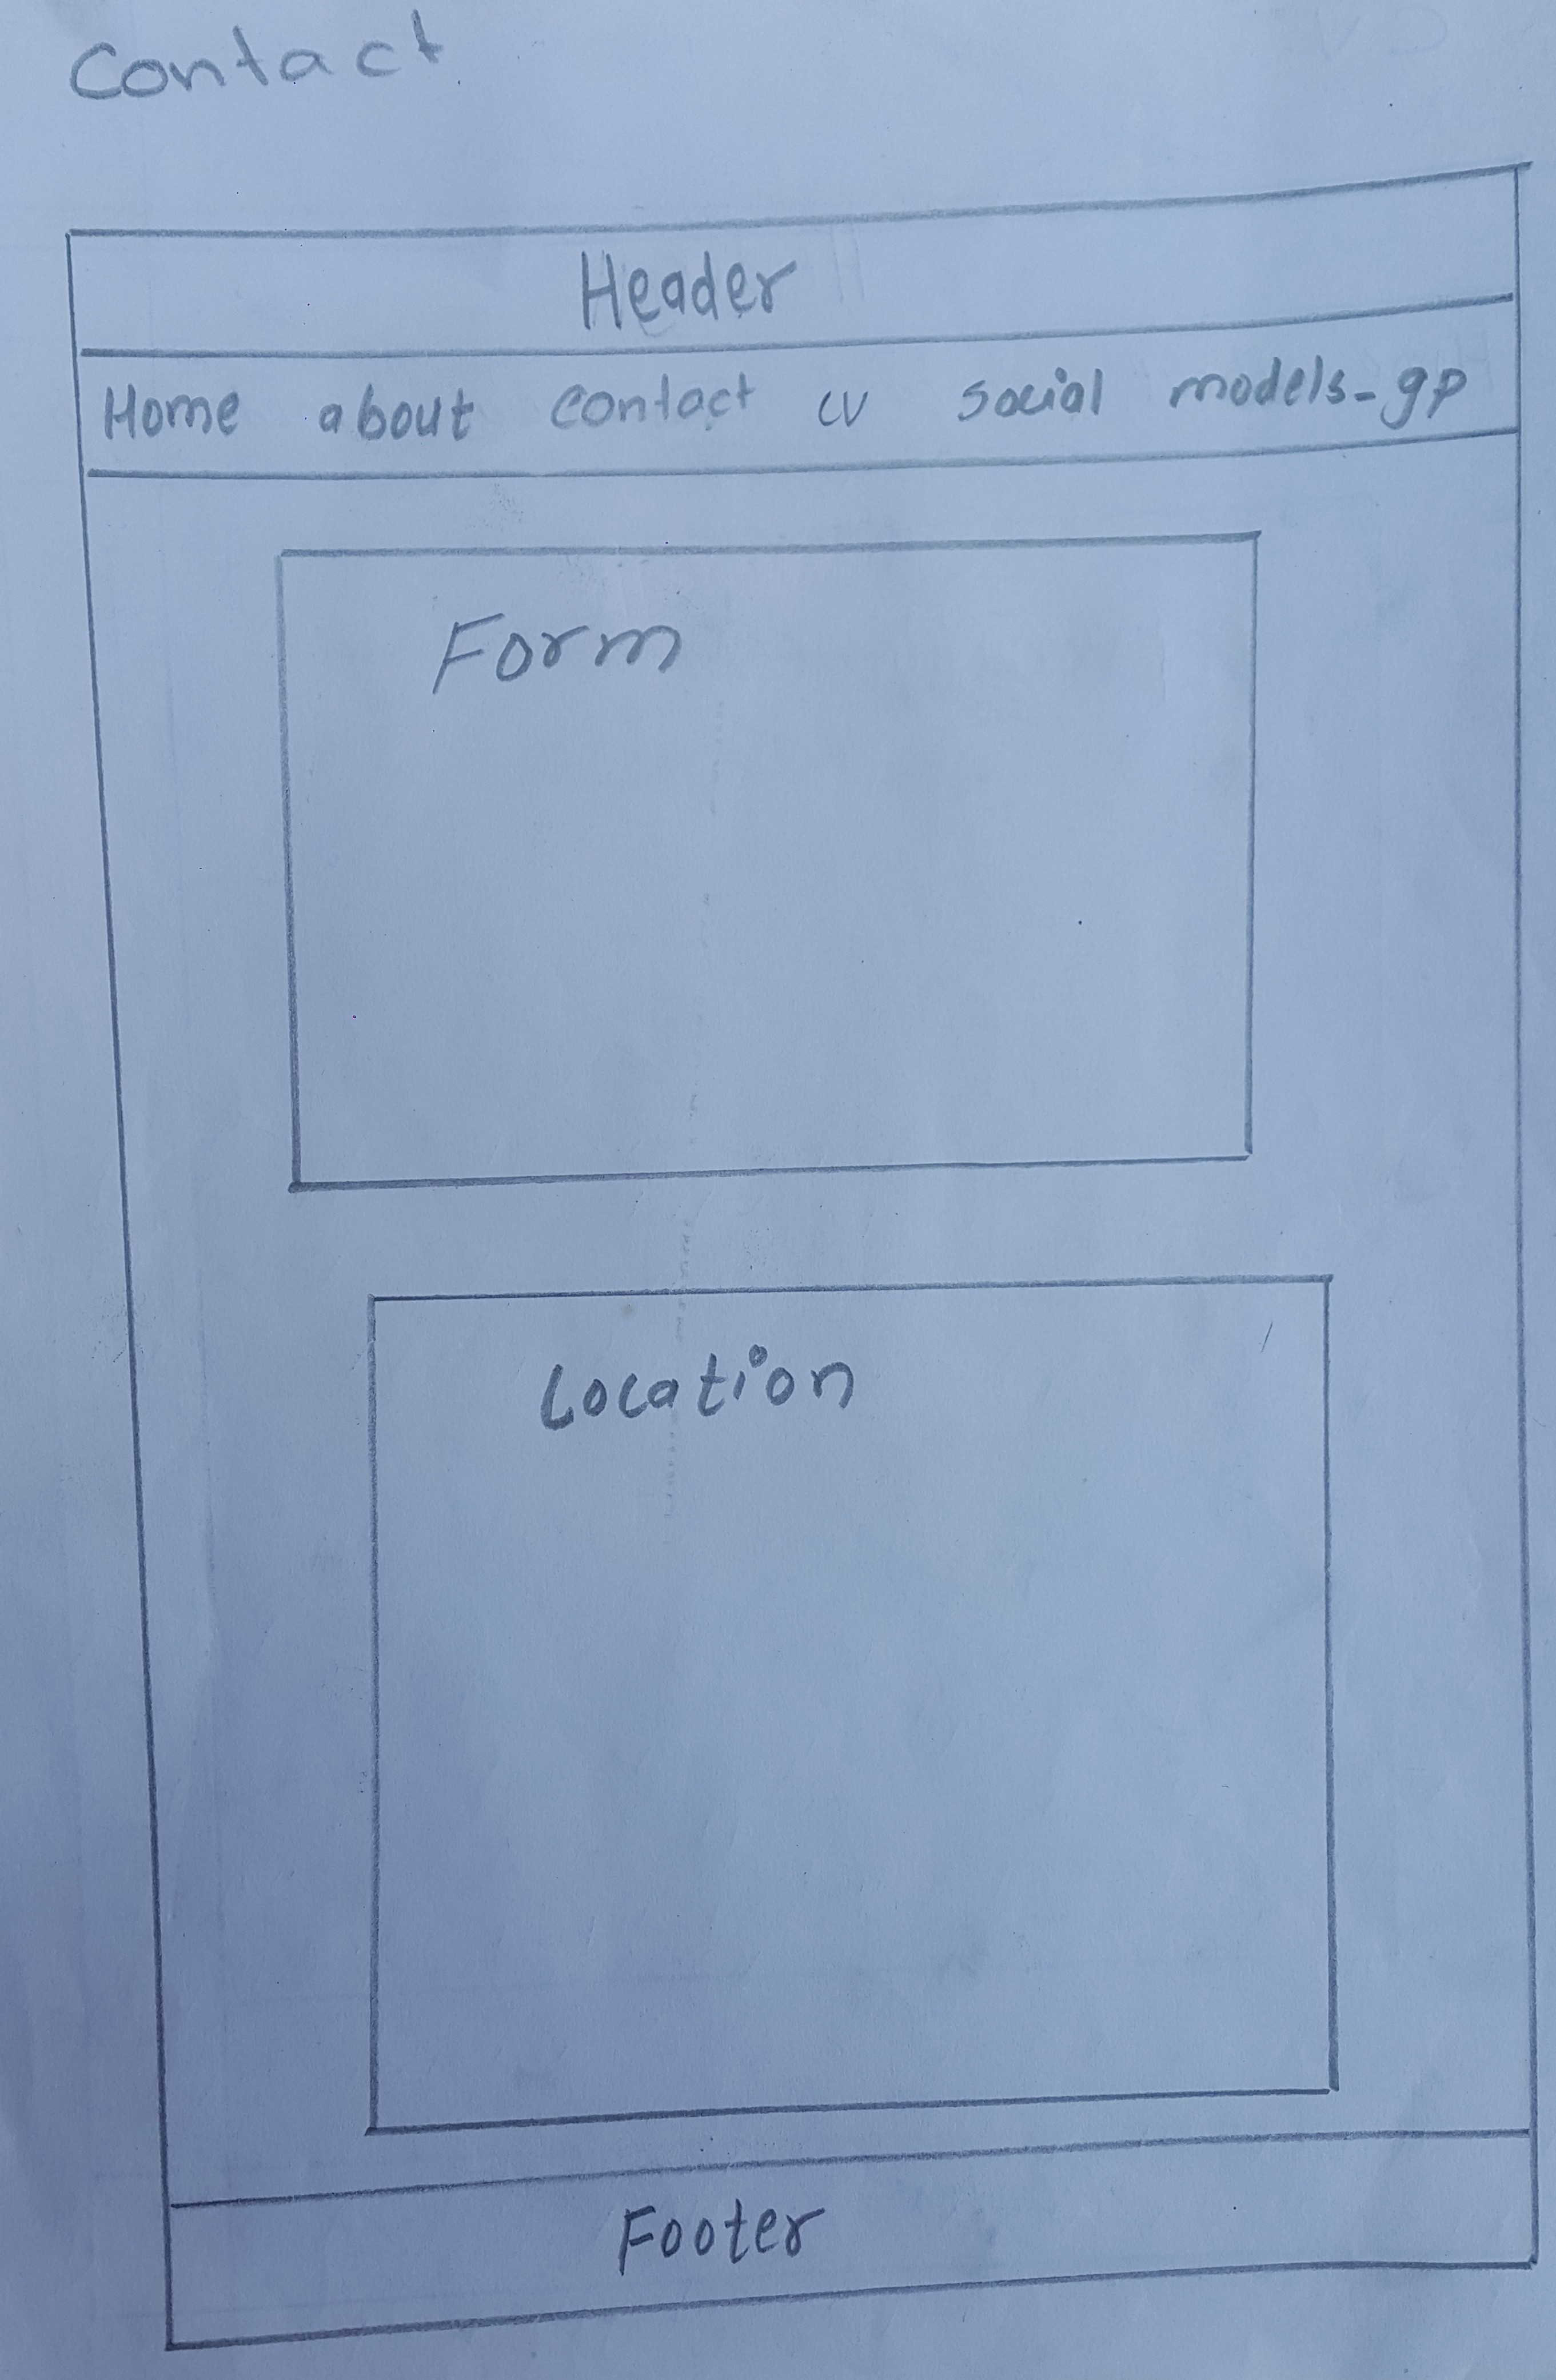 Contact
Header
Home about contact cv social models-gp
Form
Location
Footer